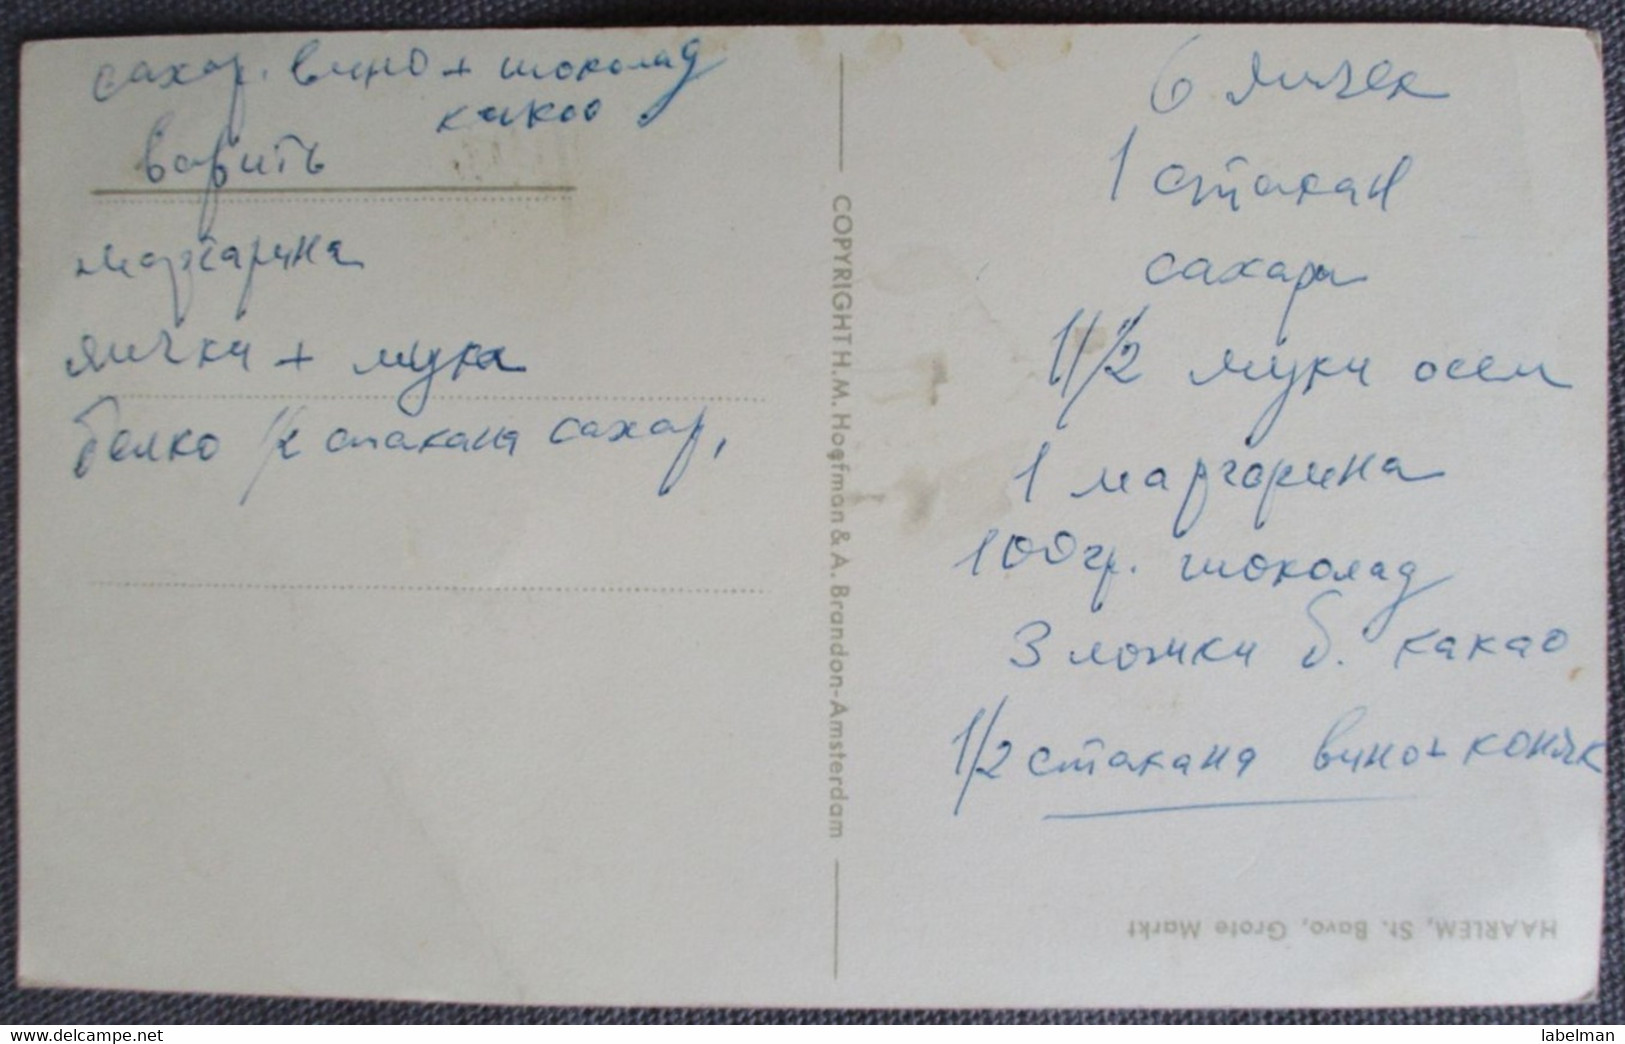 сахар. вино + шоколад
какоо
варить
маргарина
яички + мука
белко 1/2 стакана сахар,
COPYRIGHT H.M. Hoofman & A. Brandon-Amsterdam
6 яичек
1 стакан
сахара
1 1/2 муки осем
1 маргарина
100 гр. шоколад
3 ложки б. какао
1/2 стакана вино + коняк
HAARLEM, St. Bavo, Grote Markt
labelman